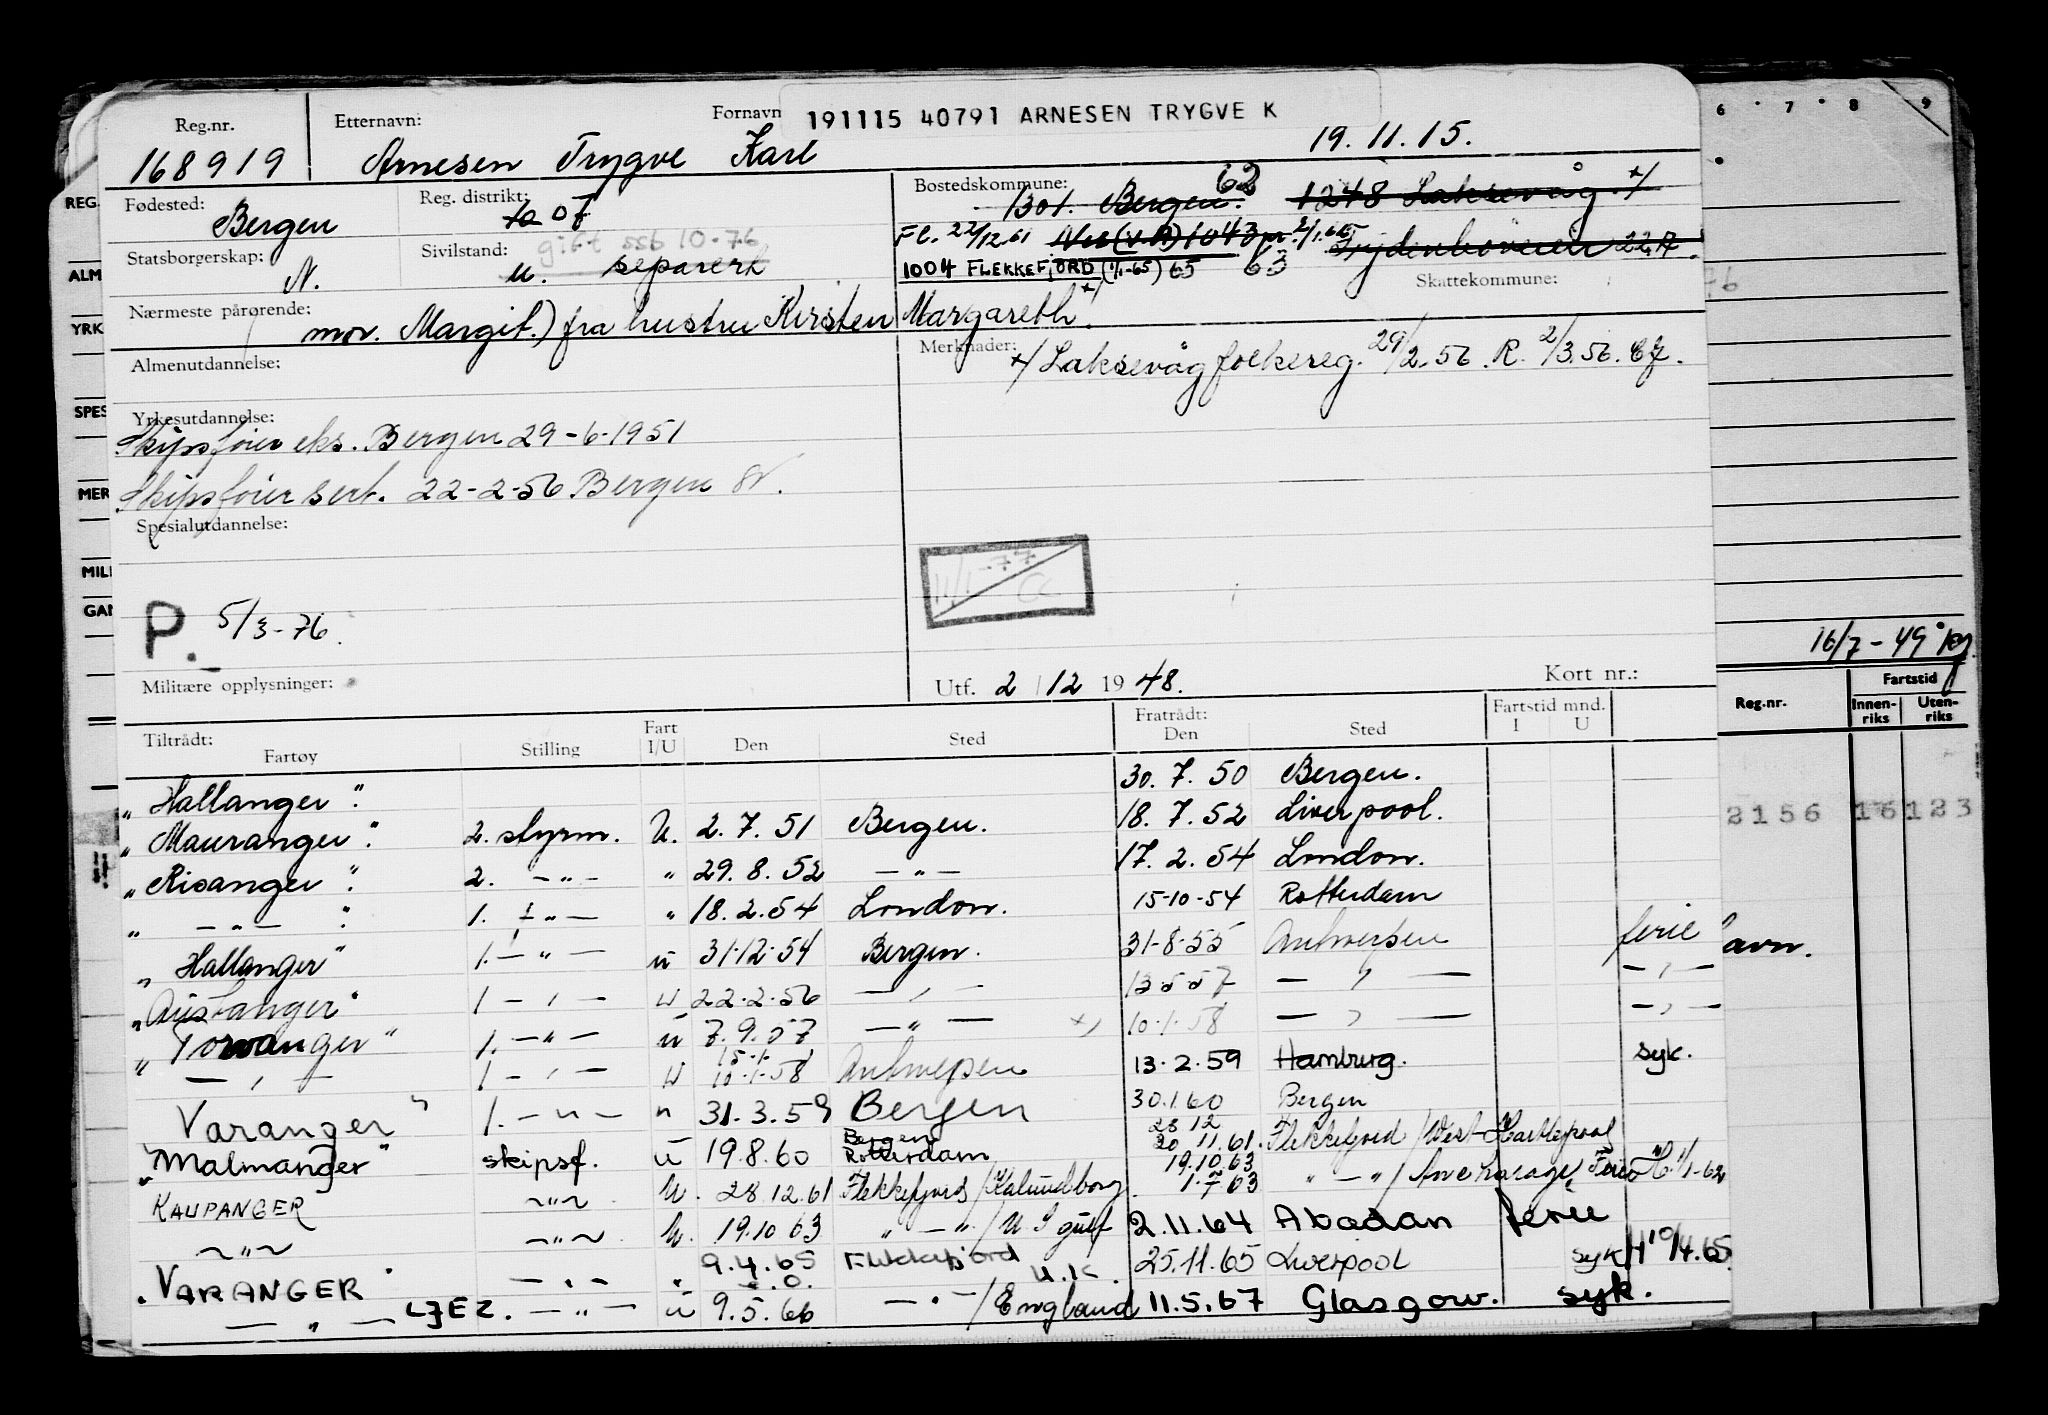 Reg.nr. Etternavn: Fornavn 191115 40791 ARNESEN TRYGVE K
168919 Arnesen Trygve Karl 19.11.15.
Fødested: Bergen Reg. distrikt: 07 Bostedskommune: 1301. Bergen. 62 1248 Laksevåg. x/
Fl. 22/12.61 1043
Statsborgerskap: N. Sivilstand: u. separert gift ssb 10-76
1004 FLEKKEFJORD (1/1-65) 65 63
Skattekommune:
Nærmeste pårørende: mor. Margit.) fra hustru Kirsten Margareth x/
Almenutdannelse:
Merknader: x/ Laksevåg folkereg. 29/2.56. R. 2/3.56.
Yrkesutdannelse:
Skipsfører eks. Bergen 29-6-1951
Skipsfører sert. 22-2-56 Bergen
Spesialutdannelse:
P. 5/3-76.
Militære opplysninger:
Utf. 2/12 1948. Kort nr.:
Tiltrådt: Fartøy Stilling Fart I/U Den Sted Fratrådt: Den Sted Fartstid mnd. I U
"Hallanger". 30.7.50 Bergen.
"Mauranger". 2. styrm. U. 2.7.51 Bergen. 18.7.52 Liverpool.
"Risanger". 2. -"- " 29.8.52 -"- 17.2.54 London.
" -"- ". 1. -"- " 18.2.54 London. 15-10-54 Rotterdam
"Hallanger" 1. -"- u 31.12.54 Bergen. 31-8-55 Antwerpen ferie
1 -"- u 22.2.56 -"- 13.5.57 -"- -"-
"Torvanger" 1. -"- u 7.9.57 -"- x) 10.1.58 -"- -"-
-"- 1 -"- u 10.1.58 Antwerpen 13.2.59 Hamburg. syk.
Varanger" 1. -"- " 31.3.59 Bergen 30.1.60 Bergen
"Malmanger" skipsf. u 19.8.60 Bergen Rotterdam 28 12 20.11.61. Flekkefjord / West-Hartlepool
KAUPANGER -"- U. 28.12.61 Flekkefjord / Kalundborg 19.10.63 1.7 63 " -"- / Ferie 1/1-62
-"- -"- U. 19.10 63 " -"- / U S gulf 2.11.64 Abadan ferie
"VARANGER" -"- " 9.4.65 Flekkefjord U.K. 25.11.65 Liverpool syk
-"- LJEZ. -"- u 9.5.66 -"- / England 11.5.67 Glasgow. syk.
REG.
ALM
YRK
SPES
MER
MILI
GAN
6 7 8 9
76
16/7-49
Reg.nr. Fartstid
Innen-riks Uten-riks
2156 16123
avn.